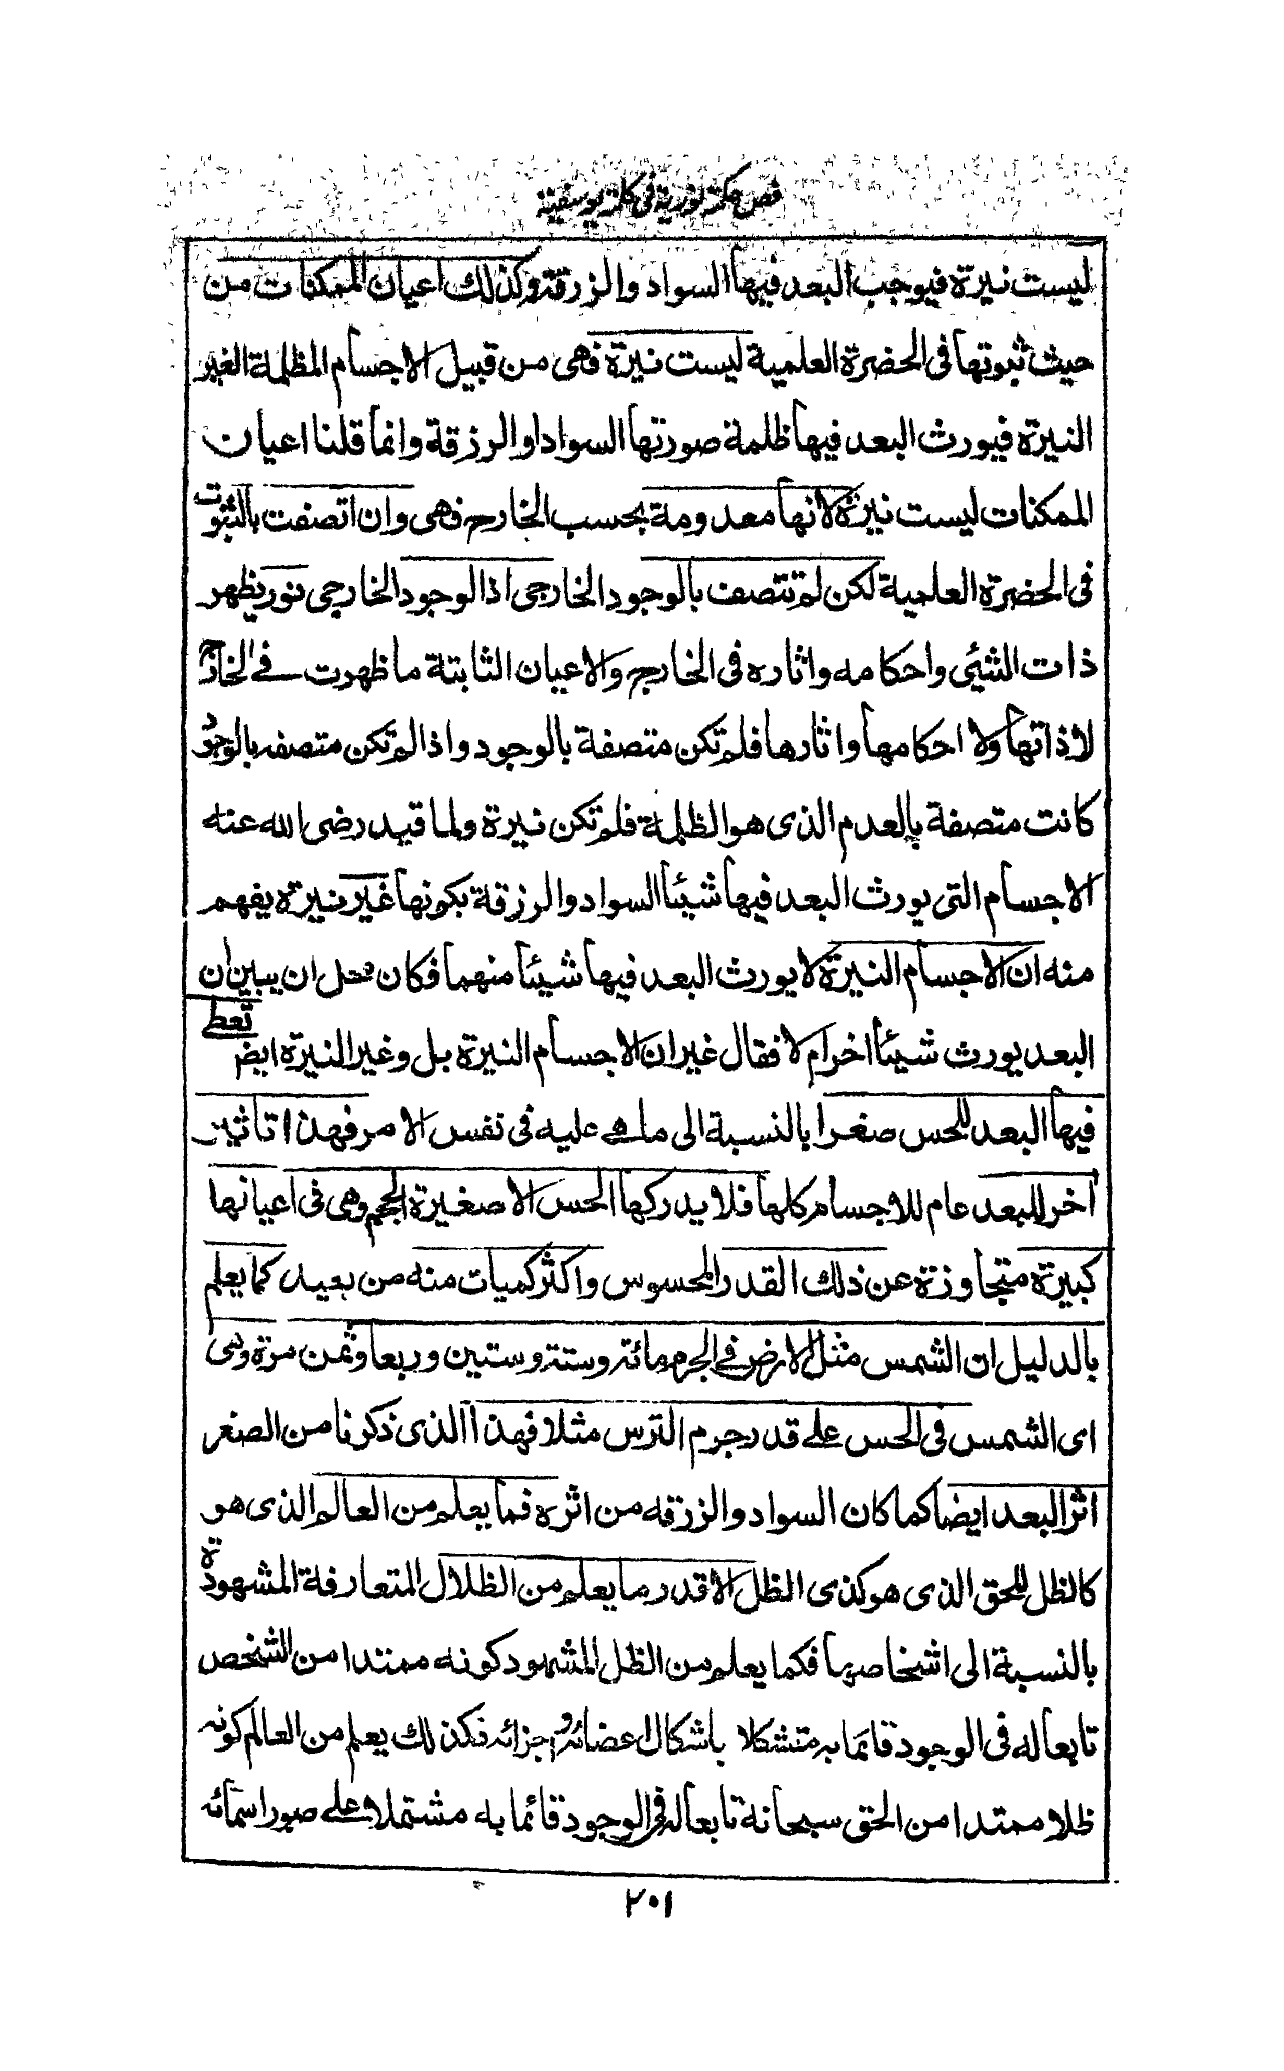 فص حكمة نورية فى كلمة يوسفية
ليست نيرة فيوجب البعد فيها السواد والزرقة وكذلك اعيان الممكنات من
حيث ثبوتها فى الحضرة العلمية ليست نيرة فهى من قبيل الاجسام المظلمة الغير
النيرة فيورث البعد فيها ظلمة صورتها السواد او الزرقة وانما قلنا اعيان
الممكنات ليست نيرة لانها معدومة بحسب الخارج فهى وان اتصفت بالثبوت
فى الحضرة العلمية لكن لم تتصف بالوجود الخارجى اذ الوجود الخارجى نور يظهر
ذات الشئى واحكامه واثاره فى الخارج والاعيان الثابتة ما ظهرت فے الخارج
لا ذاتها ولا احكامها واثارها فلم تكن متصفة بالوجود واذا لم تكن متصفه بالوجود
كانت متصفة بالعدم الذى هو الظلمة فلم تكن نيرة ولما قيد رضى الله عنه
الاجسام التى يورث البعد فيها شيئا السواد والزرقة بكونها غير نيرة يفهم
منه ان الاجسام النيرة لا يورث البعد فيها شيئا منهما فكان محل ان يبين ان
البعد يورث شيئا اخر ام لا فقال غير ان الاجسام النيرة بل وغير النيرة ايض تعطے
فيها البعد للحس صغرا بالنسبة الى ما هے عليه فى نفس الامر فهذا تاثير
اخر للبعد عام للاجسام كلها فلا يدركها الحس الا صغيرة الحجم وهى فى اعيانها
كبيرة متجاوزة عن ذلك القدر المحسوس واكثر كميات منه من بعيد كما يعلم
بالدليل ان الشمس مثل الارض فے الجرم مائة وستة وستين وربعا وثمن مرة وهى
اى الشمس فى الحس علے قدر جرم الترس مثلا فهذا الذى ذكرنا من الصغر
اثر البعد ايضا كما كان السواد والزرقه من اثره فما يعلم من العالم الذى هو
كالظل للحق الذى هو كذى الظل الا قدر ما يعلم من الظلال المتعارفة المشهودة
بالنسبة الى اشخاصها فكما يعلم من الظل المشهود كونه ممتدا من الشخص
تابعا له فى الوجود قائما به متشكلا باشكال اعضائه واجزائه فكذلك يعلم من العالم كونه
ظلا ممتدا من الحق سبحانه تابعا له فى الوجود قائما به مشتملا علے صور اسمائه
٢٠١